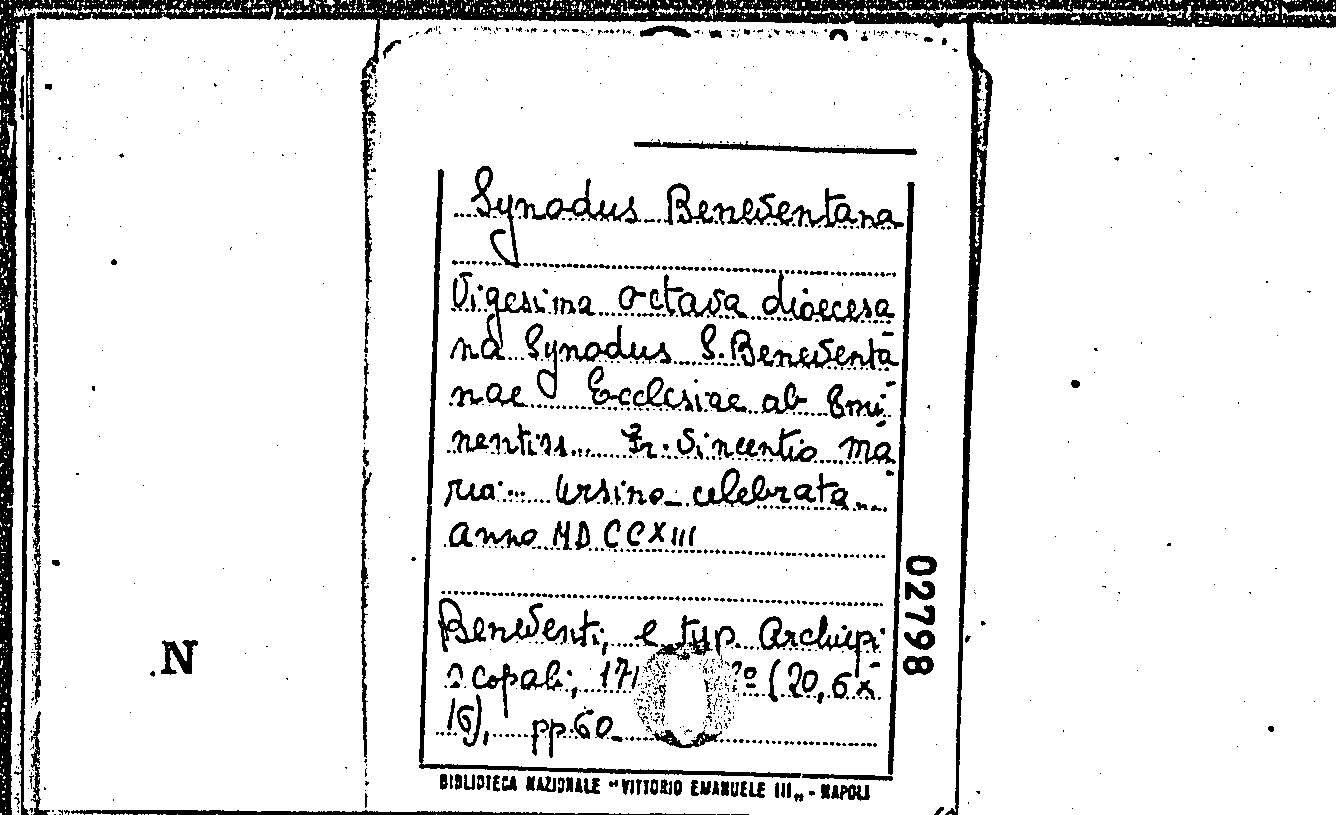 Synodus Beneventana
Vigesima octava dioecesa
na Synodus S. Beneventa
nae Ecclesiae ab Emi
nentiss... Fr. Vincentio Ma
ria... Ursino celebrata...
anno MDCCXIII
Beneventi, e typ. Archiepi
scopali, 171 º (20,6 x
16), pp. 60
02798
.N
BIBLIOTECA NAZIONALE "VITTORIO EMANUELE III„ - NAPOLI